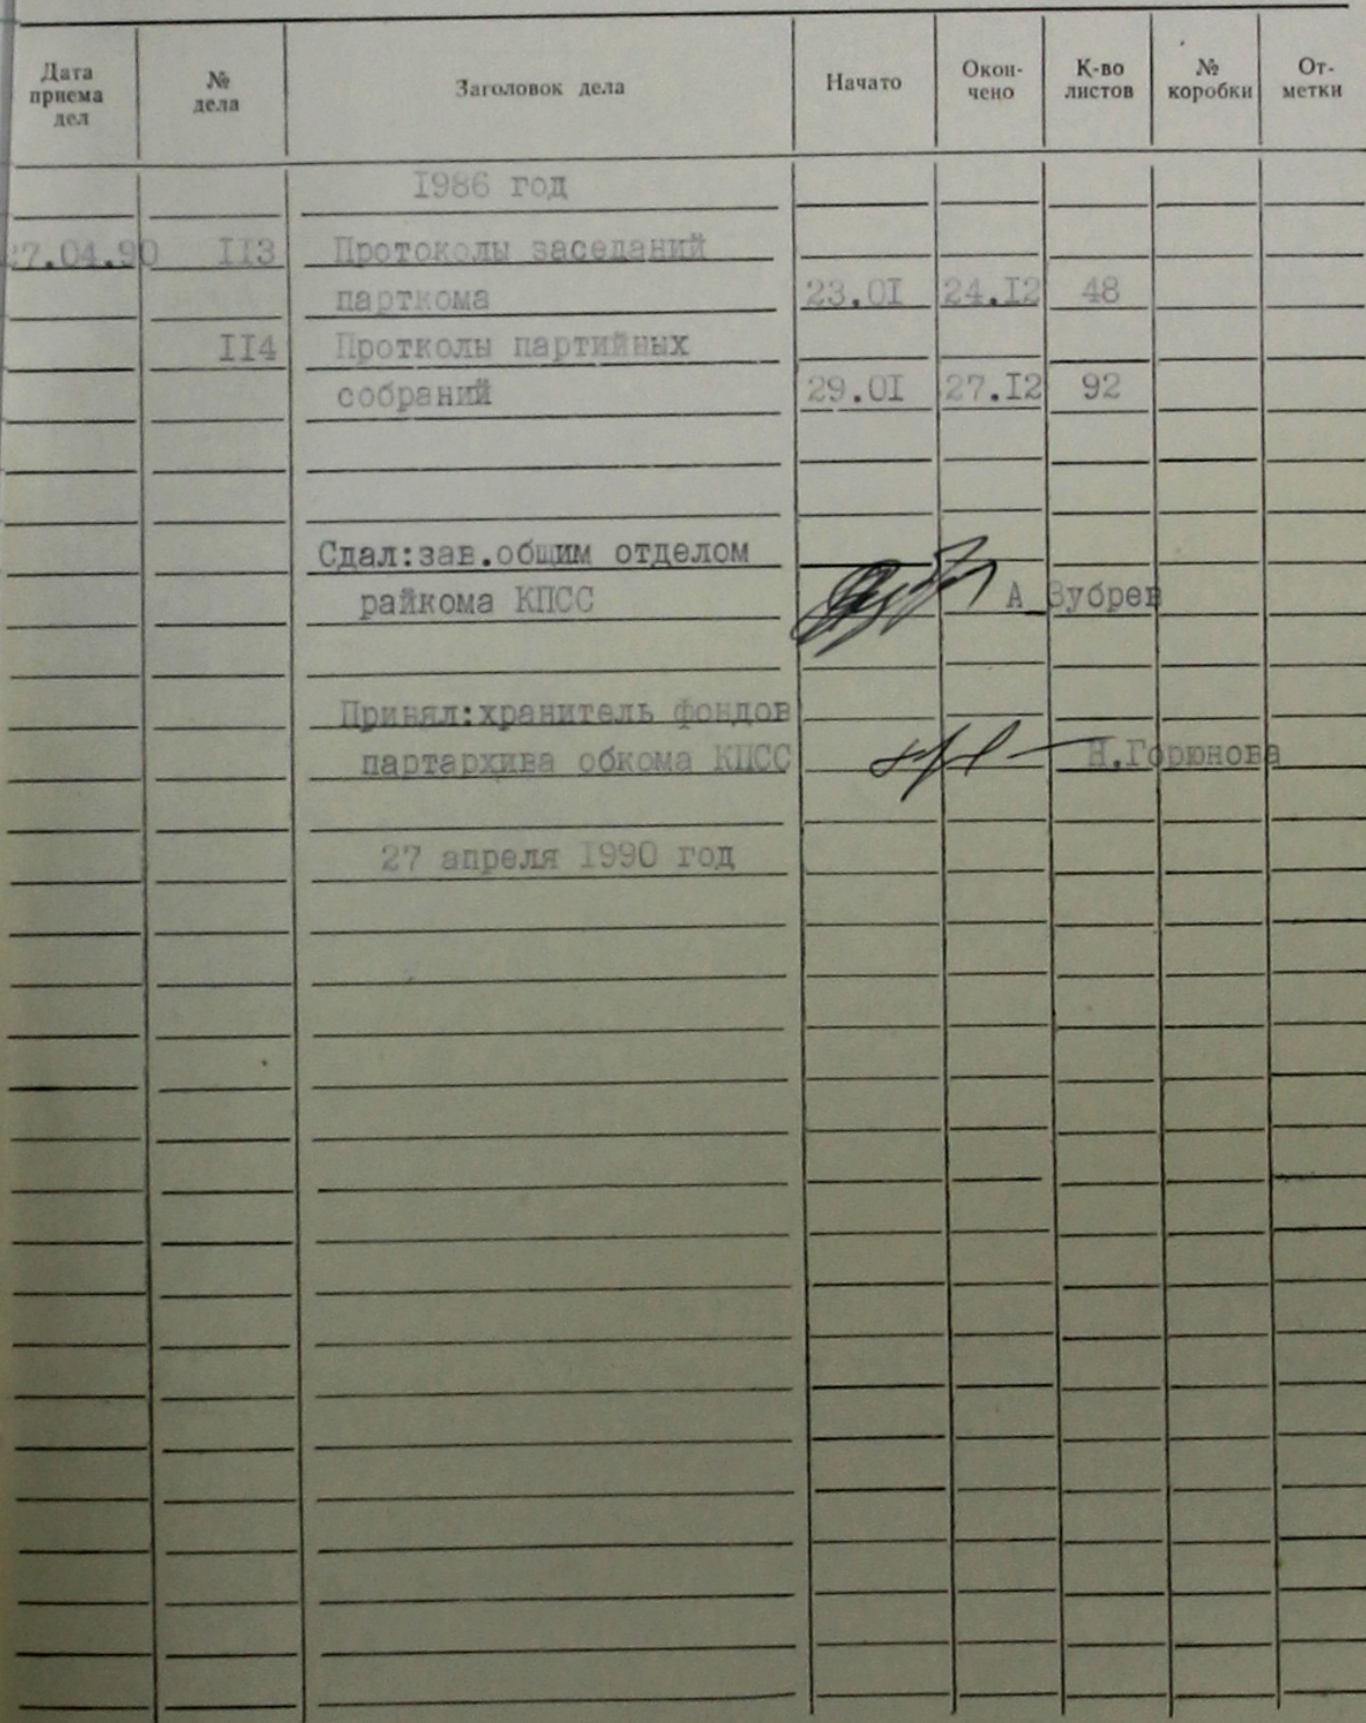 Дата приема дел № дела Заголовок дела Начато Окон- чено К-во листов № коробки От- метки
1986 год
27.04.90 113 Протоколы заседаний
парткома 23.01 24.12 48
114 Протколы партийных
собраний 29.01 27.12 92
Сдал:зав.общим отделом
райкома КПСС А Зубрев
Принял:хранитель фондов
партархива обкома КПСС Н.Горюнова
27 апреля 1990 год